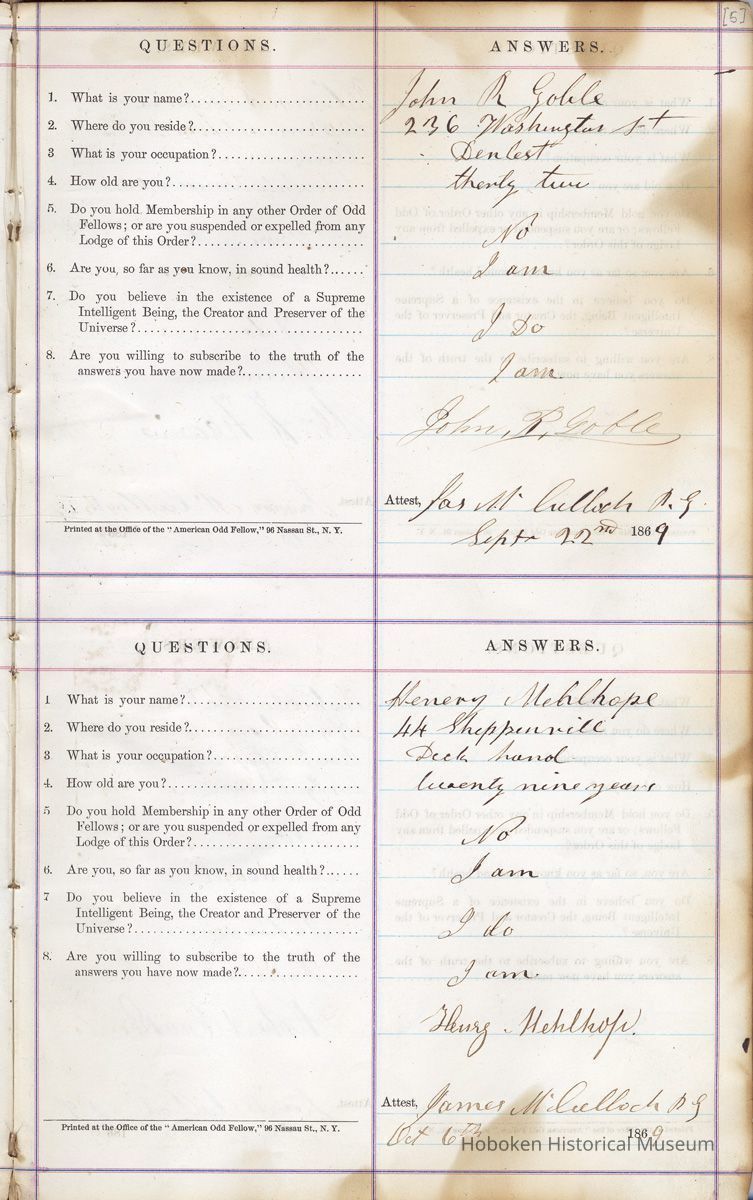 [5]
QUESTIONS.
ANSWERS.
1. What is your name?
John R Goble
2. Where do you reside?
236 Washington St
3 What is your occupation?
Dentest
4. How old are you?
therty two
5. Do you hold Membership in any other Order of Odd
Fellows; or are you suspended or expelled from any
Lodge of this Order?
No
6. Are you, so far as you know, in sound health?
I am
7. Do you believe in the existence of a Supreme
Intelligent Being, the Creator and Preserver of the
Universe?
I Do
8. Are you willing to subscribe to the truth of the
answers you have now made?
I am
John, R, Goble
Attest, Jas McCulloch N. G.
Sept 22nd 1869
Printed at the Office of the "American Odd Fellow," 96 Nassau St., N. Y.
QUESTIONS.
ANSWERS.
1 What is your name?
Henery Mehlhope
2. Where do you reside?
44
3 What is your occupation?
Deck hand
4. How old are you?
twenty nine years
5 Do you hold Membership in any other Order of Odd
Fellows; or are you suspended or expelled from any
Lodge of this Order?
No
6. Are you, so far as you know, in sound health?
I am
7 Do you believe in the existence of a Supreme
Intelligent Being, the Creator and Preserver of the
Universe?
I do
8. Are you willing to subscribe to the truth of the
answers you have now made?
I am.
Henry Mehlhop.
Attest, James McCulloch N G
Oct 6th 1869
Printed at the Office of the "American Odd Fellow," 96 Nassau St., N. Y.
Hoboken Historical Museum